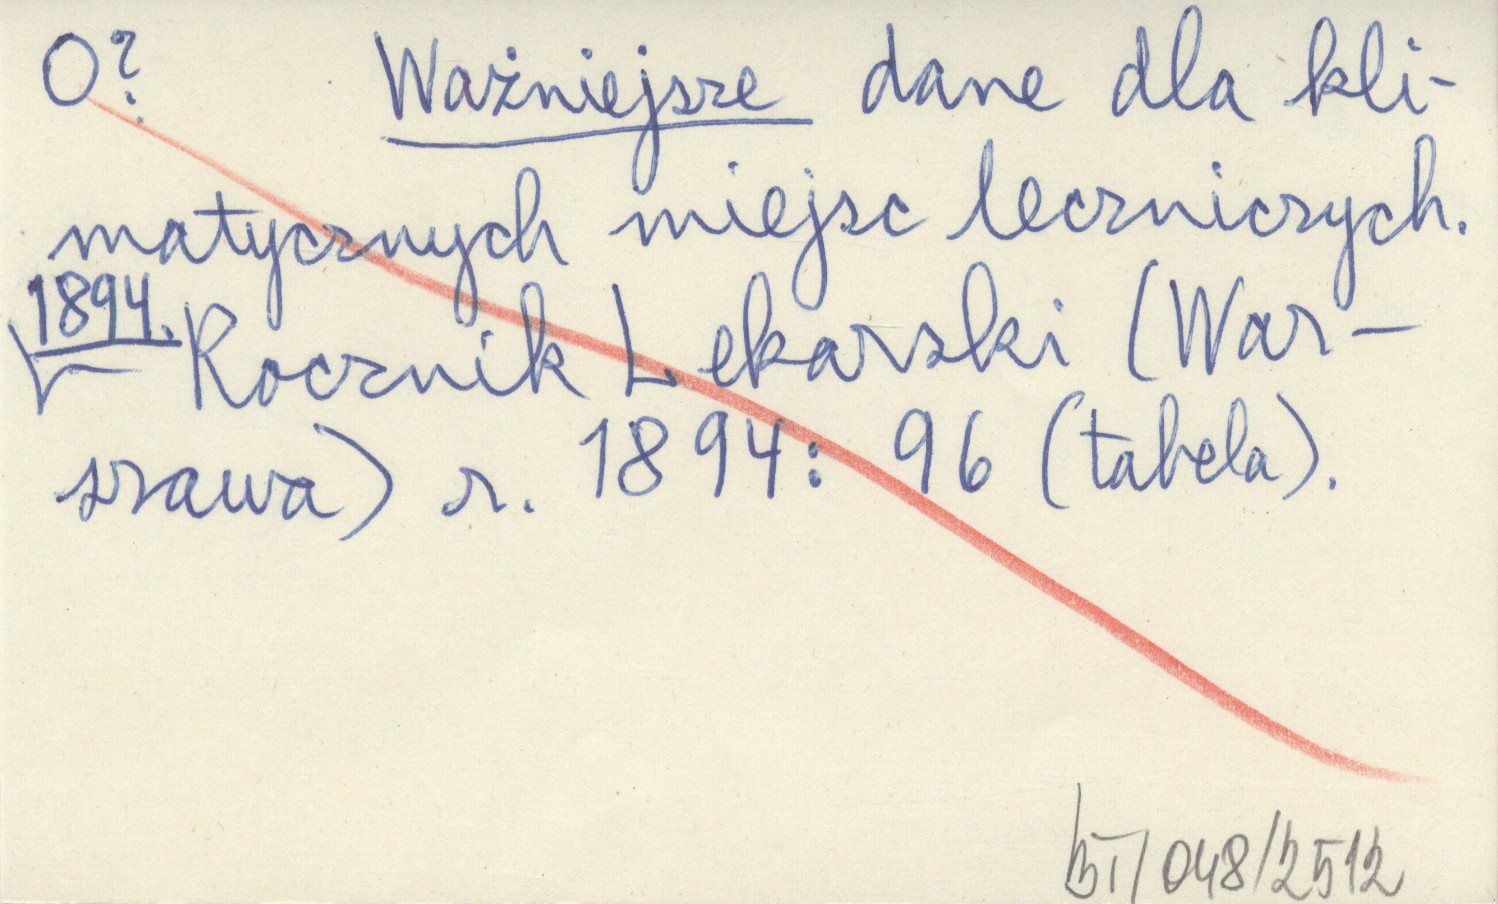 O? Ważniejsze dane dla kli-
matycznych miejsc leczniczych.
1894. Rocznik Lekarski (War-
szawa) r. 1894: 96 (tabela).
BI/048/2512